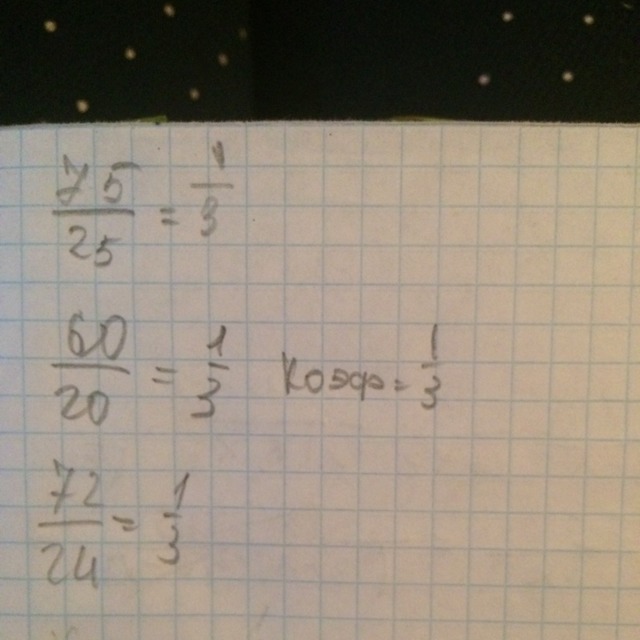 75/25 = 1/3
60/20 = 1/3 Коэф = 1/3
72/24 = 1/3